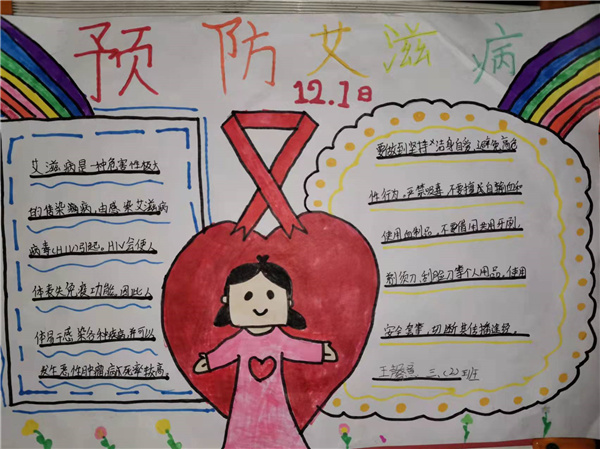 预防艾滋病
12.1日
艾滋病是一种危害性极大
的传染病,由感染艾滋病
病毒(HIV)引起。HIV会使人
体丧失免疫功能,因此人
体易于感染各种疾病,并可以
发生恶性肿瘤,病死率较高。
要做到坚持洁身自爱,避免高危
性行为。严禁吸毒,不要擅或自输血和
使用血制品,不要借用共用牙刷、
剃须刀、刮脸刀等个人用品,使用
安全套等,切断其传播途径。
王 三、(2)班